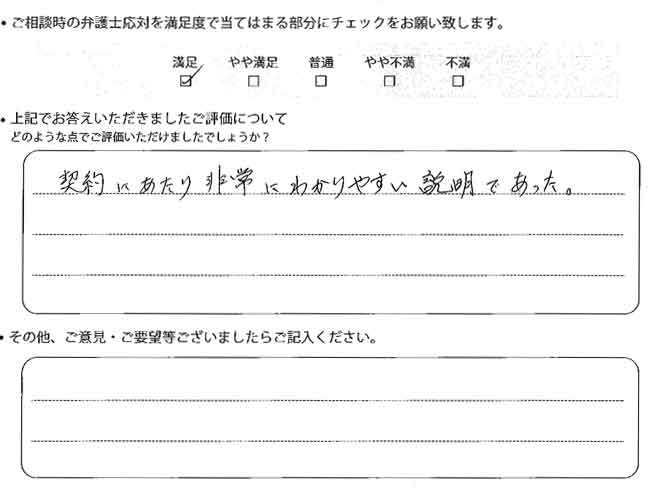 • ご相談時の弁護士応対を満足度で当てはまる部分にチェックをお願い致します。
満足 やや満足 普通 やや不満 不満
☑ ☐ ☐ ☐ ☐
• 上記でお答えいただきましたご評価について
どのような点でご評価いただけましたでしょうか？
契約にあたり非常にわかりやすい説明であった。
• その他、ご意見・ご要望等ございましたらご記入ください。